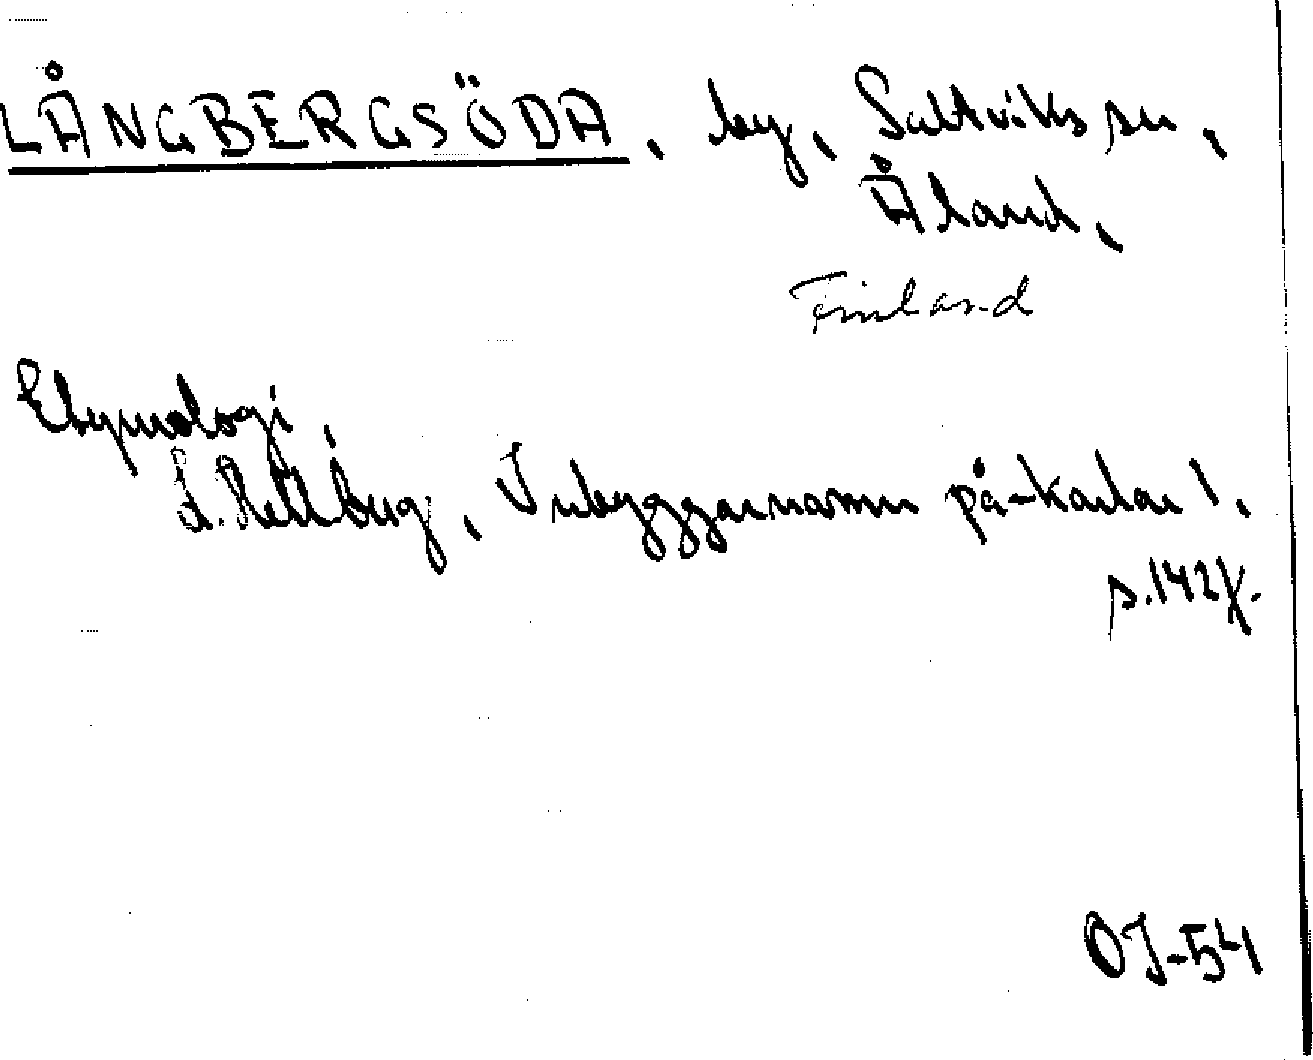 LÅNGBERGSÖDA, by, Saltviks sn,
Åland,
Finland
Etymologi,
L. Hellberg, Inbyggarnamn på -karlar 1,
s. 142f.
OJ-54